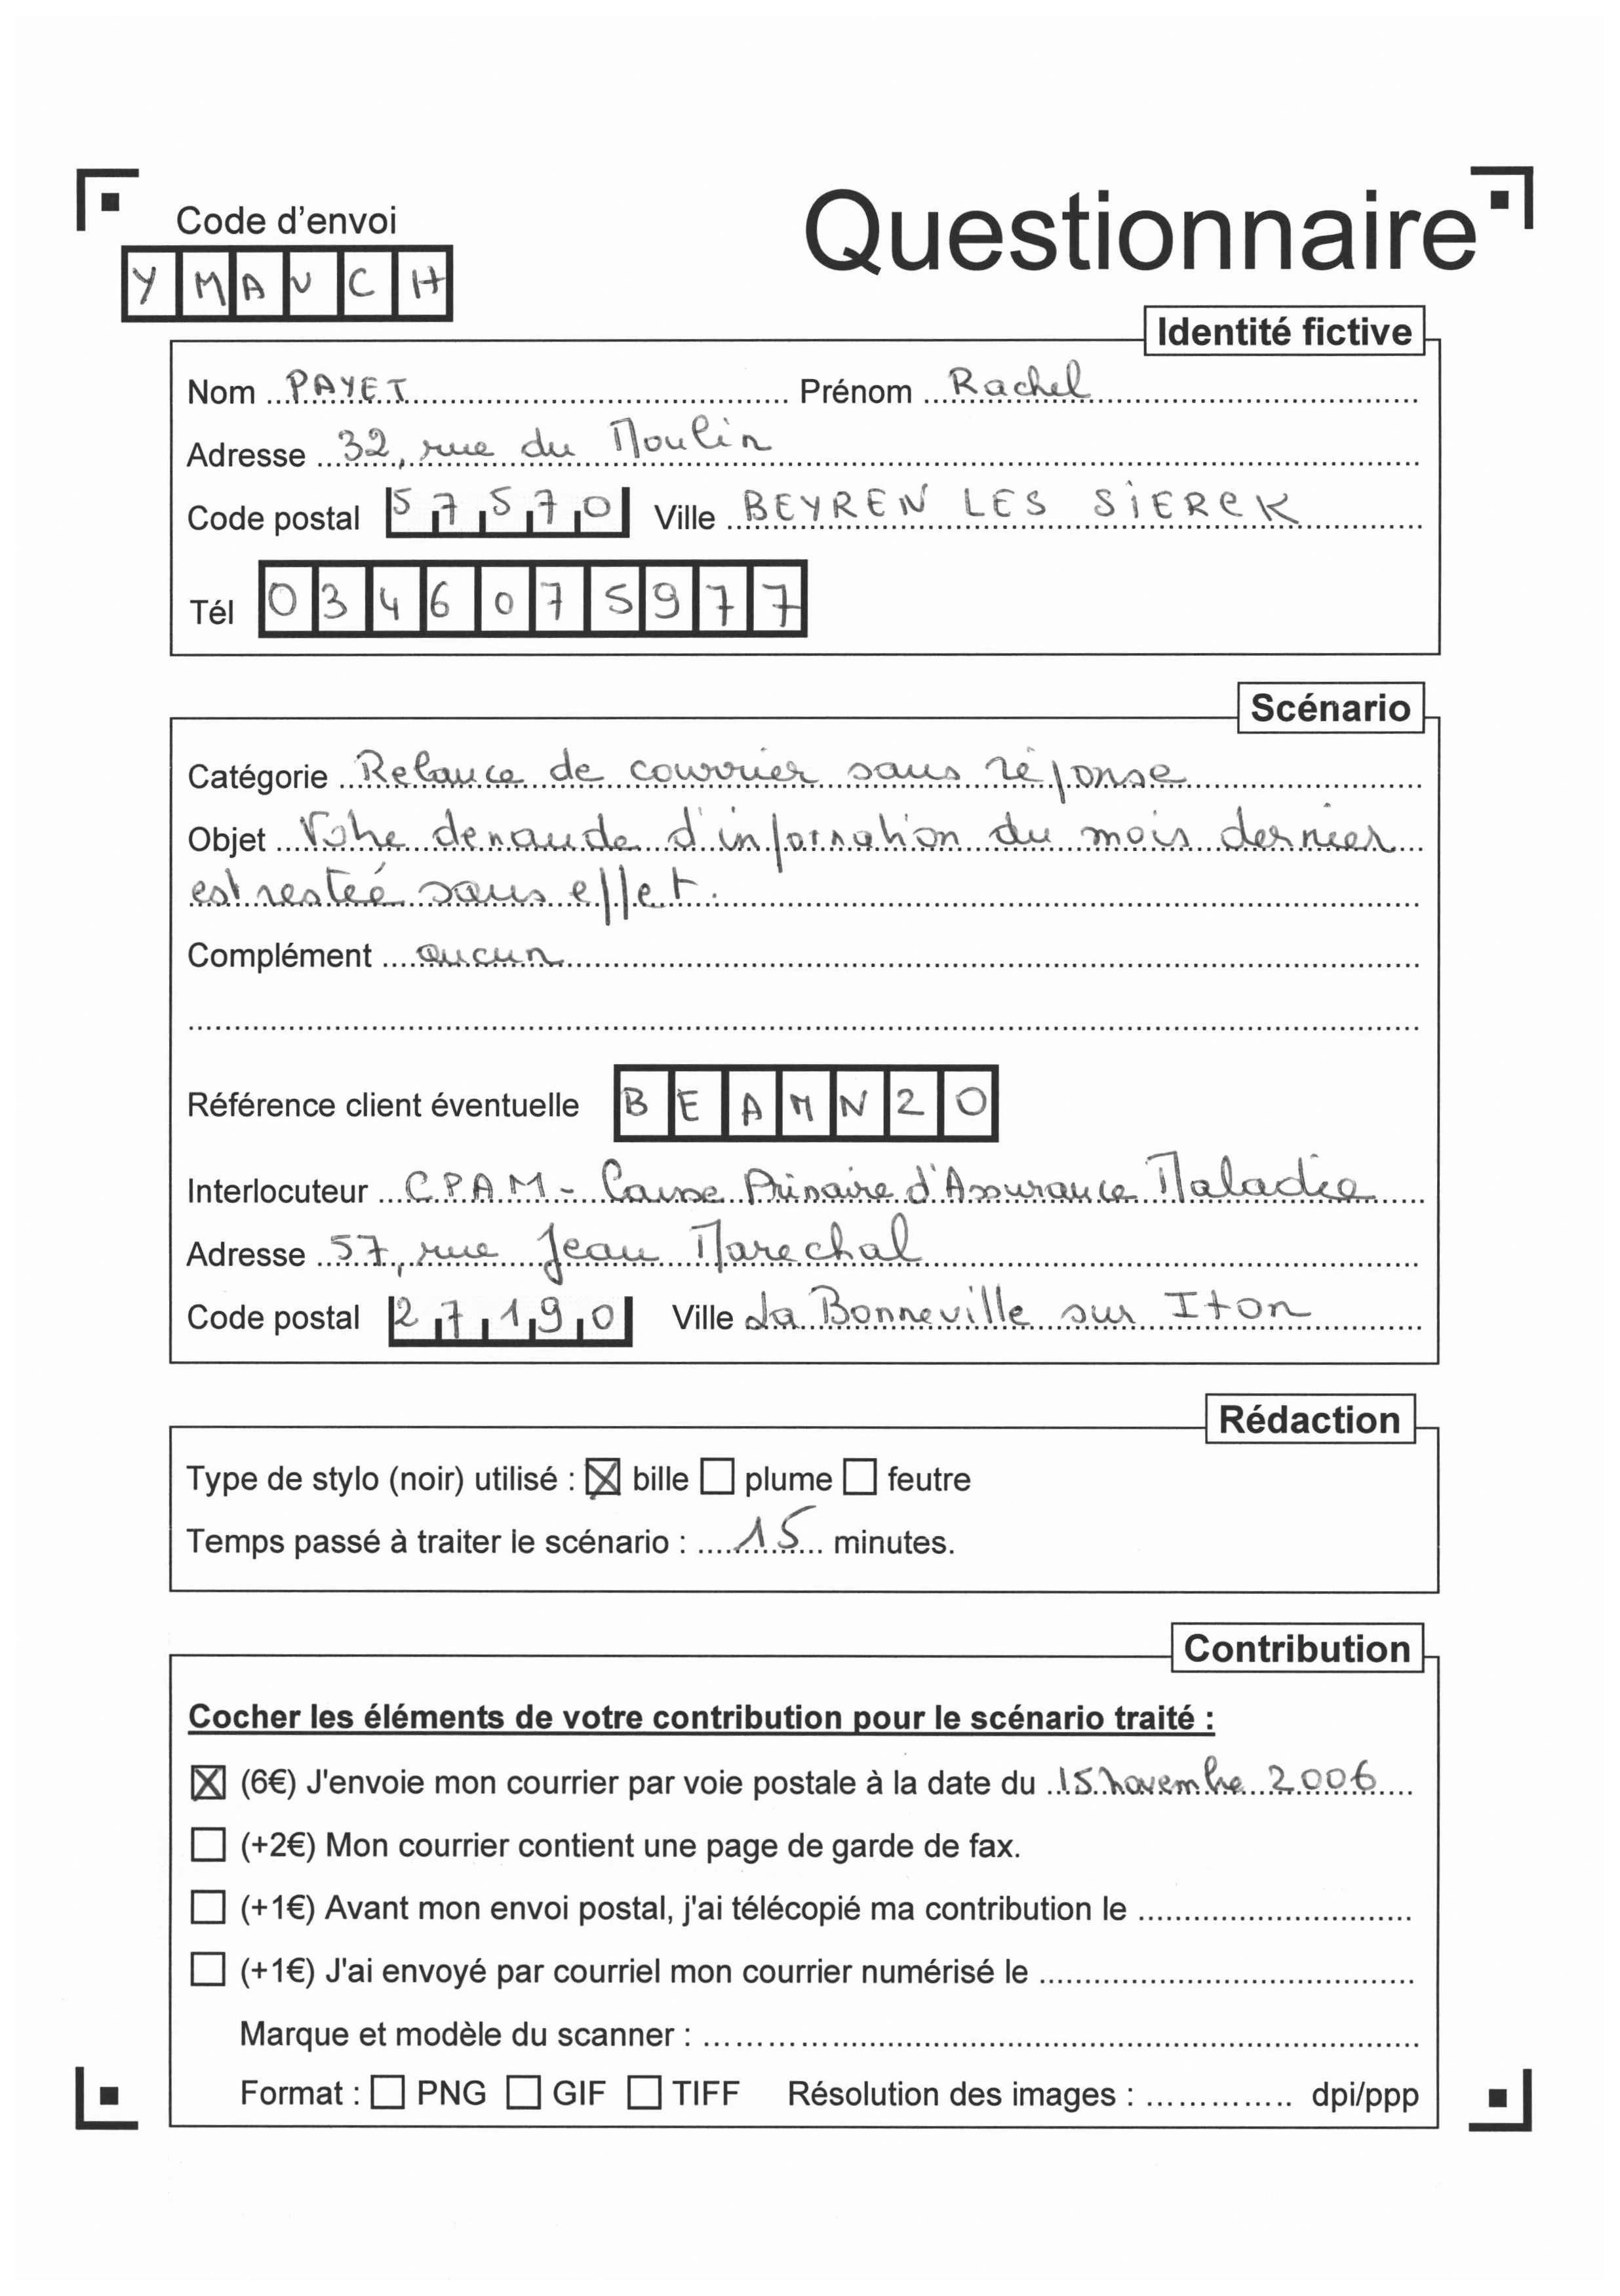 Questionnaire
Code d'envoi
YMAUCH
Identité fictive
Nom PAYET Prénom Rachel
Adresse 32, rue du Moulin
Code postal 57570 Ville BEYREN LES SIERCK
Tél 0346075977
Scénario
Catégorie Relance de courrier sans réponse
Objet Votre demande d'information du mois dernier
est restée sans effet.
Complément aucun
Référence client éventuelle BEAMN20
Interlocuteur CPAM - Caisse Primaire d'Assurance Maladie
Adresse 57, rue Jean Marechal
Code postal 27190 Ville La Bonneville sur Iton
Rédaction
Type de stylo (noir) utilisé : ☒ bille ☐ plume ☐ feutre
Temps passé à traiter le scénario : 15 minutes.
Contribution
Cocher les éléments de votre contribution pour le scénario traité :
☒ (6€) J'envoie mon courrier par voie postale à la date du 15 novembre 2006
☐ (+2€) Mon courrier contient une page de garde de fax.
☐ (+1€) Avant mon envoi postal, j'ai télécopié ma contribution le
☐ (+1€) J'ai envoyé par courriel mon courrier numérisé le
Marque et modèle du scanner :
Format : ☐ PNG ☐ GIF ☐ TIFF Résolution des images : dpi/ppp